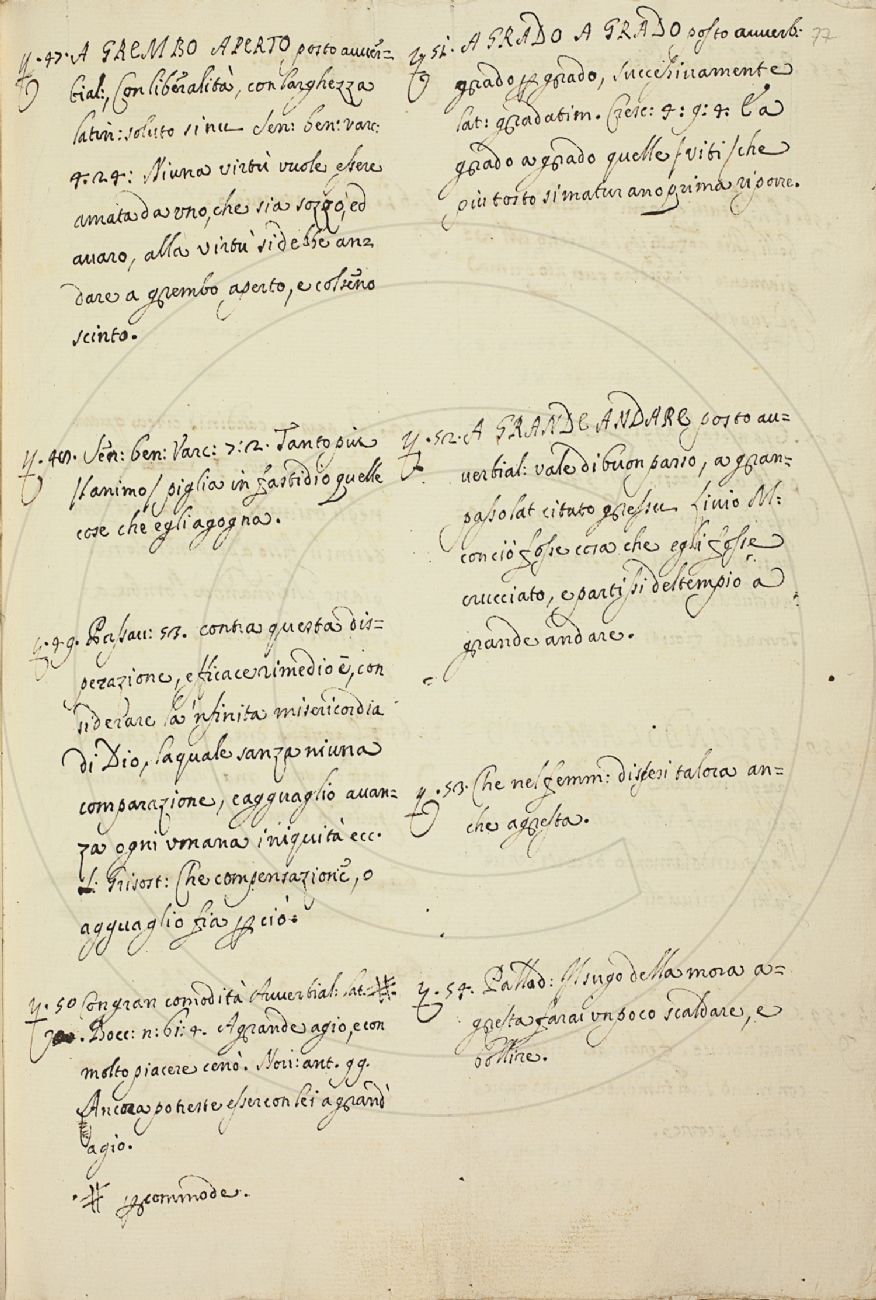 77
y. 47. A GREMBO APERTO posto auver=
bial:, Con liberalità, con larghezza
latin: soluto sinu Sen: ben: varc:
4. 24: Niuna virtù vuole essere
amata da vno, che sia sozzo, ed
auaro, alla virtù si debbe an=
dare a grembo aperto, e col seno
scinto.
y. 48. Sen: ben: Varc: 7: 2. Tanto piu
/l'animo/ piglia in fastidio quelle
cose che egli agogna.
y. 49. Passau: 53. contra questa dis=
perazione, efficace rimedio è, con
siderare la 'nfinita misericordia
di Dio, laquale sanza niuna
comparazione, e agguaglio auan=
za ogni vmana iniquità ecc.
Grisost: Che compensazione, o
agguaglio fia ꝑ ciò.
y. 50 Con gran comodità Auuerbial: lat: #.
. Bocc: n: 61: 4. A grande agio, e con
molto piacere cenò. Nou: ant. 99.
Ancora potresse esser con lei a grand
agio.
. # ꝑcommode.
y. 51. A GRADO A GRADO posto auuerb:
grado ꝑ grado, successiuamente
lat: gradatim. Cresc: 4: 9: 4: E a
grado a grado quelle /viti/ che
piu tosto si maturano prima riporre.
y. 52. A GRANDE ANDARE posto au=
uerbial: vale di buon passo, a gran=
passo lat citato gressu Liuio M:
conciò fosse cosa che egli fosse
crucciato, e partissi del tempio a
grande andare.
y. 53. Che nel femm: dissesi talora an=
che agresta.
y. 54. Pallad: Il sugo della mora a=
gresta farai vn poco scaldare, e
bollire.